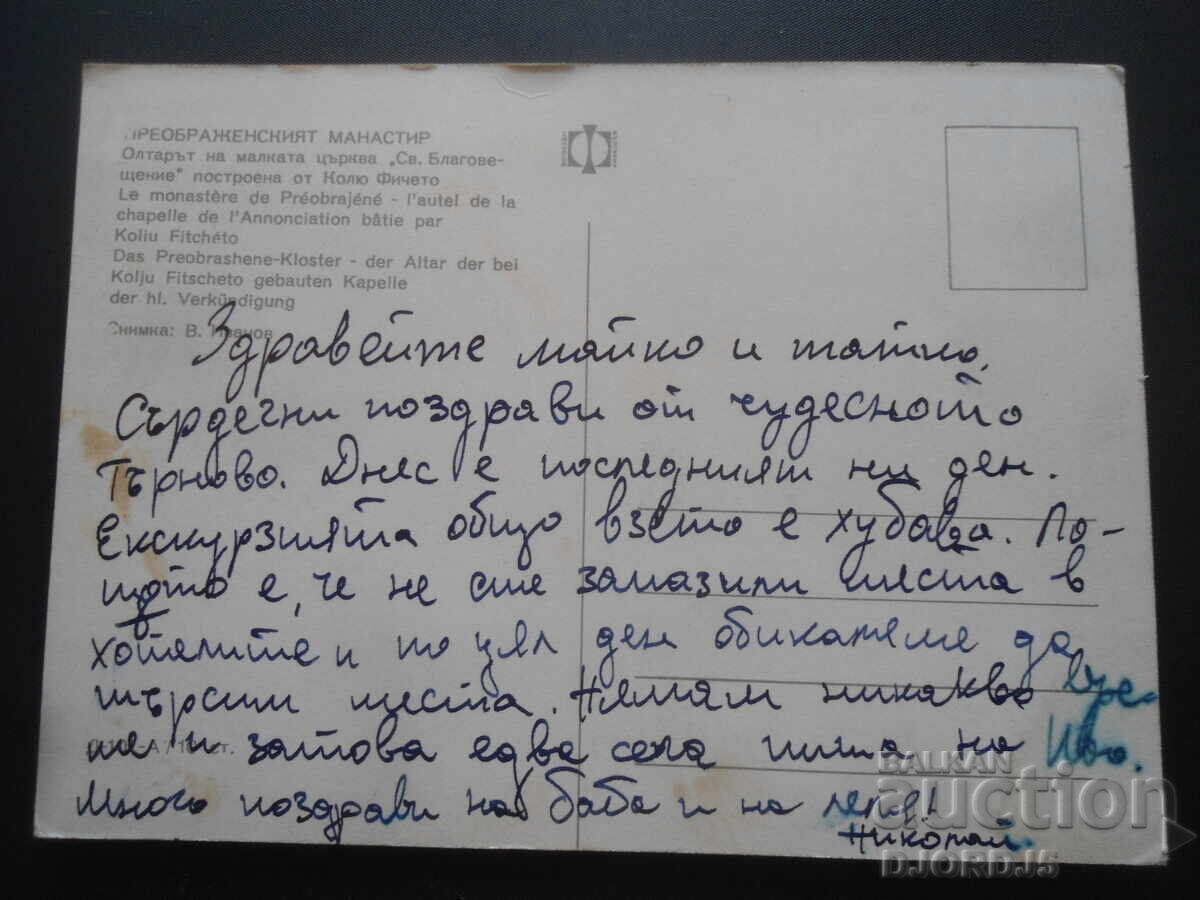 ПРЕОБРАЖЕНСКИЯТ МАНАСТИР
Олтарът на малката църква „Св. Благове-
щение" построена от Колю Фичето
Le monastère de Préobrajéné - l'autel de la
chapelle de l'Annonciation bâtie par
Koliu Fitchéto
Das Preobrashene-Kloster - der Altar der bei
Kolju Fitscheto gebauten Kapelle
der hl. Verkündigung
Снимка: В. Иванов
Здравейте майко и татко,
Сърдечни поздрави от чудесното
Търново. Днес е последният ни ден.
Екскурзията общо взето е хубава. Ло-
шото е, че не сме запазили места в
хотелите и по цял ден обикаляме да
търсим места. Нямам никакво вре-
ме и затова едва сега пиша на Иво.
Много поздрави на баба и на
Николай.
BALKAN
auction
DJORDJ5